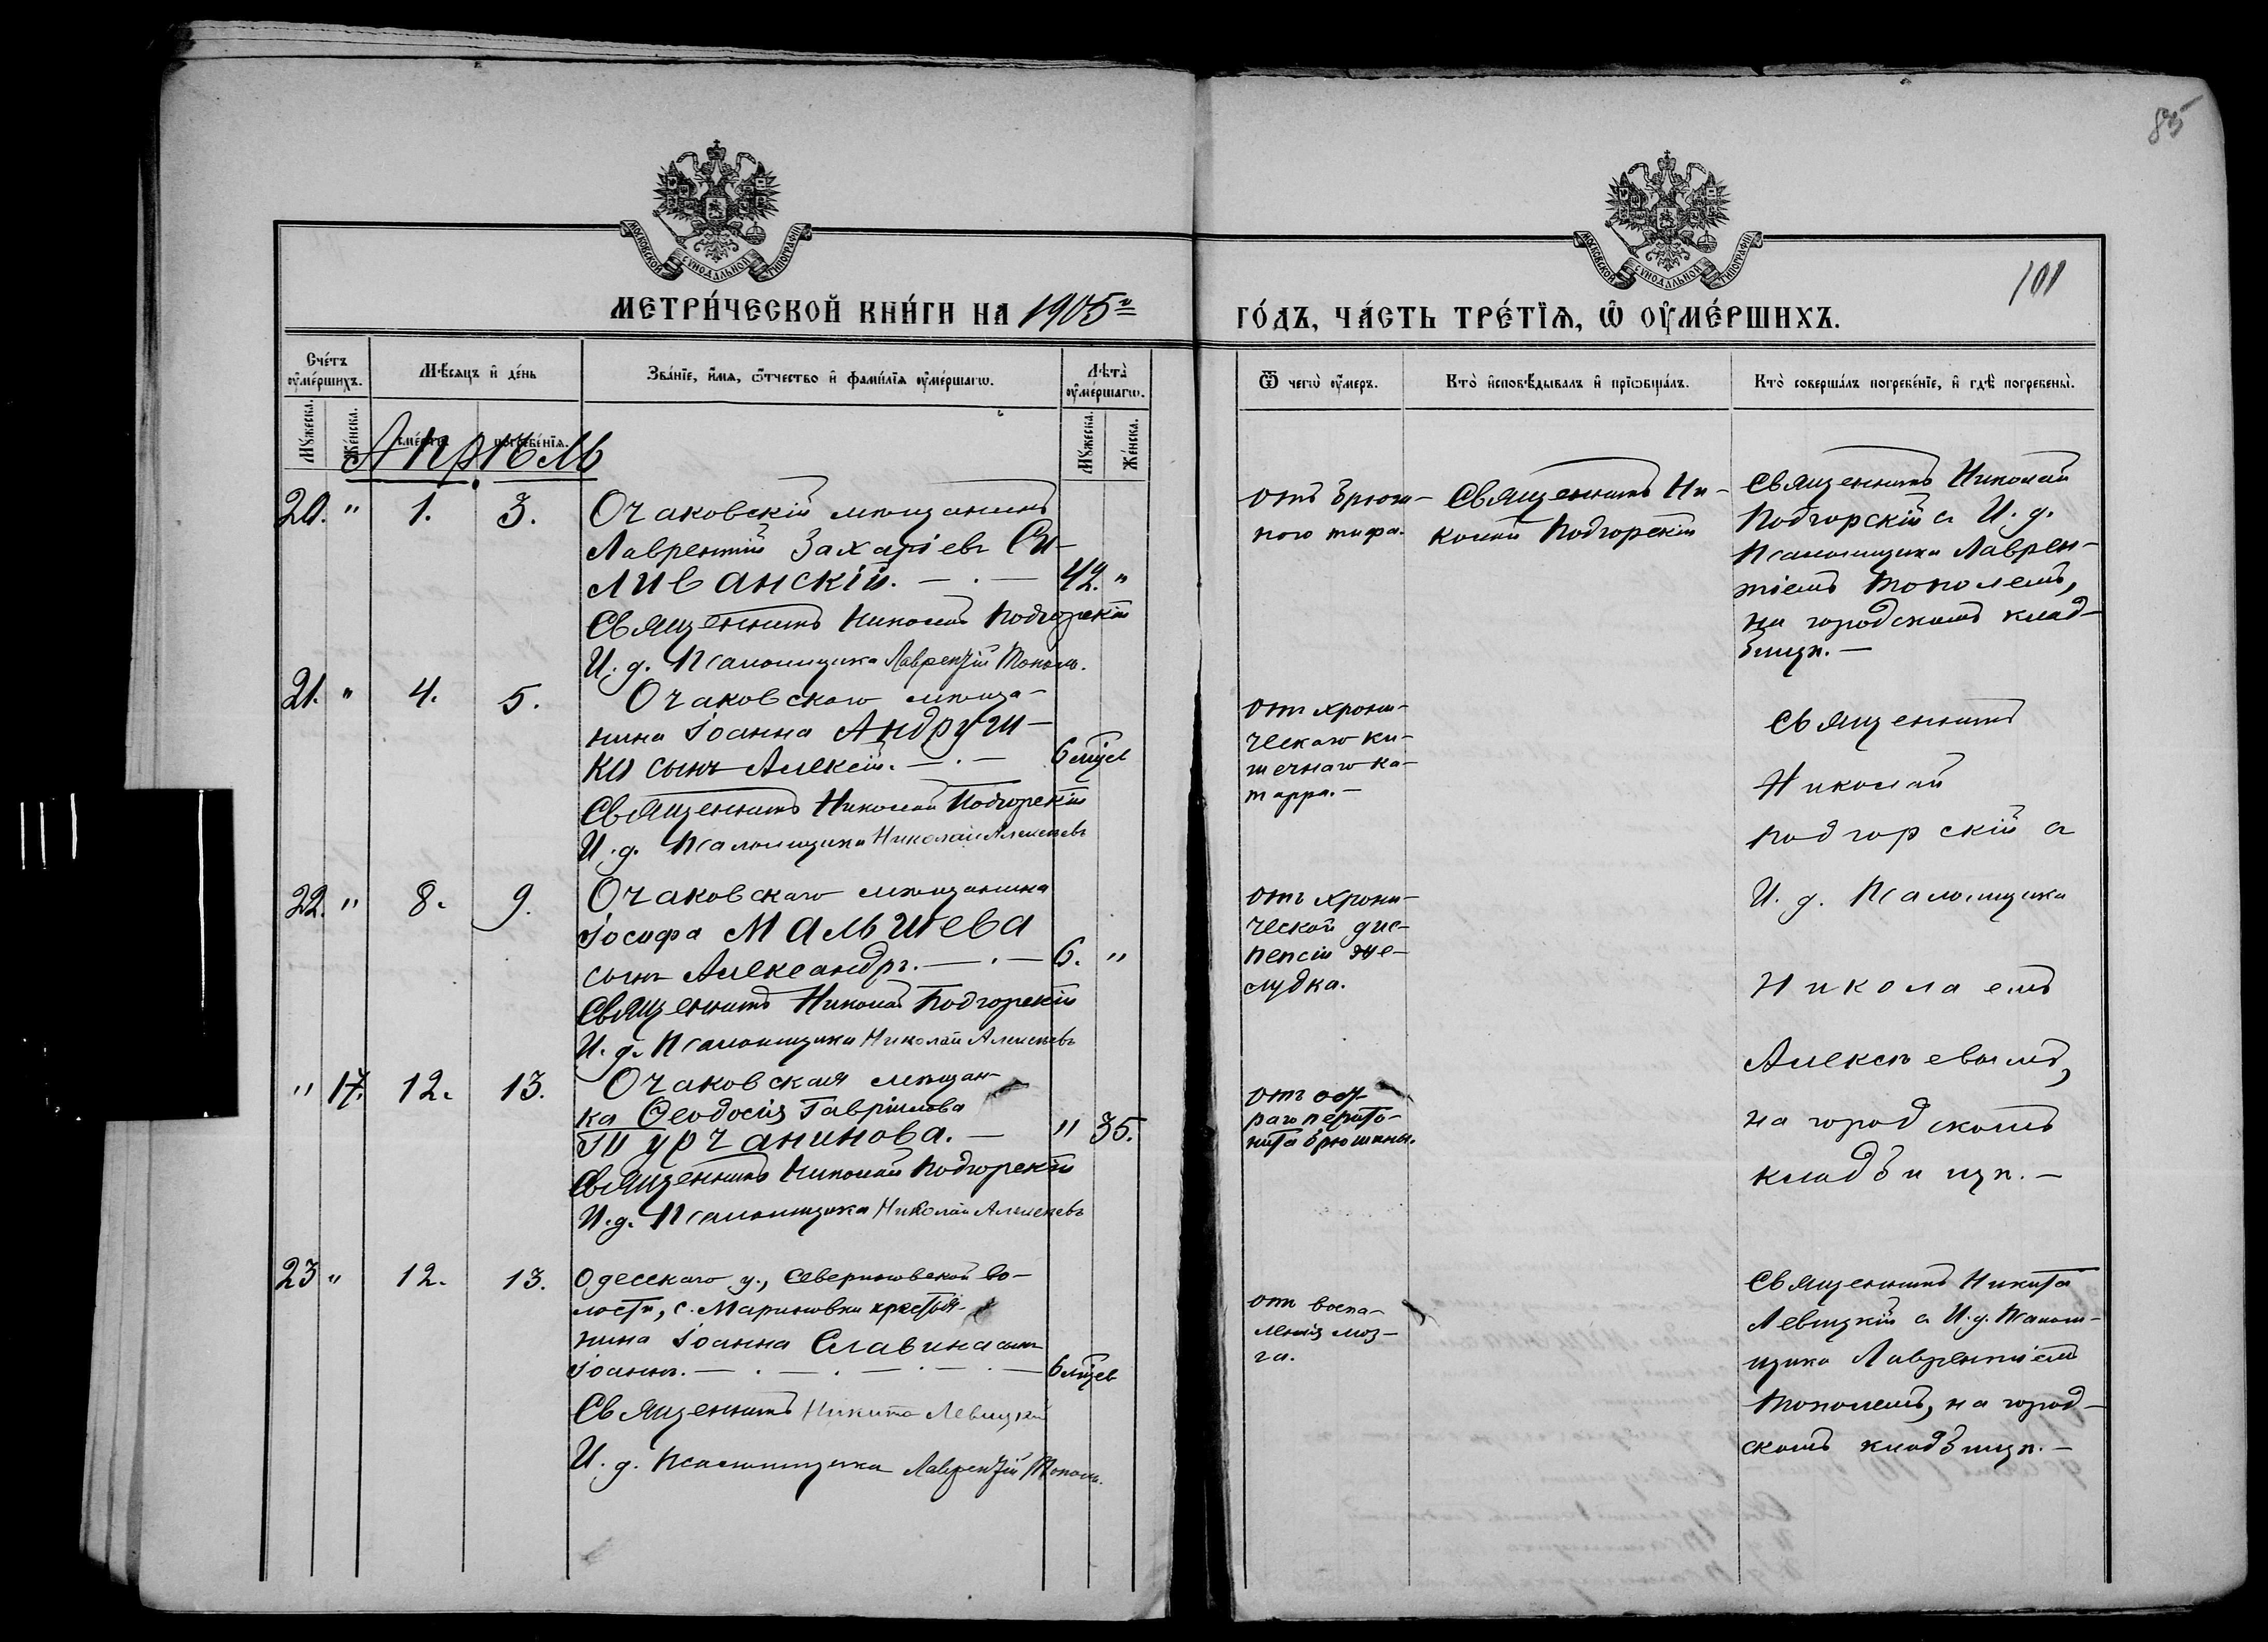 85
МОСКОВСКОЙ СУНОДАЛЬНОЙ ТИПОГРАФІИ
МОСКОВСКОЙ СУНОДАЛЬНОЙ ТИПОГРАФІИ
101
МЕТРИ́ЧЕСКОЙ КНИ́ГИ НА 1905й
ГО́ДЪ, ЧА́СТЬ ТРЕ́ТЇѦ, Ѡ҆ ОУ҆МЕ́РШИХЪ.
Сче́тъ оу҆ме́ршихъ.
Мѣ́сяцъ и҆ де́нь
Зва́нїе, и҆́мя, ѻ҆́тчество и҆ фами́лїя оу҆ме́ршагѡ.
Лѣ́та оу҆ме́ршагѡ.
Ѿ чегѡ̀ оу҆́меръ.
Кто̀ и҆сповѣ́дывалъ и҆ прїѡбща́лъ.
Кто̀ соверша́лъ погребе́нїе, и҆ гдѣ̀ погребены̀.
Мꙋ́жеска.
Же́нска.
сме́рти.
погребе́нїя.
Мꙋ́жеска.
Же́нска.
Апрѣль
20. " 1. 3. Очаковскій мѣщанинъ
Лаврентій Захаріевъ Си-
ливанскій. — . — 42. "
Священникъ Николай Подгорскій
И. д. Псаломщика Лаврентій Тополь.
отъ брюш-
ного тифа.
Священникъ Ни-
колай Подгорскій
Священникъ Николай
Подгорскій съ И. д.
Псаломщика Лаврен-
тіемъ Тополемъ,
на городскомъ клад-
бищѣ. —
21. " 4. 5. Очаковскаго мѣща-
нина Іоанна Андрущи-
ка сынъ Алексій. — . — 6 мѣсяцев
Священникъ Николай Подгорскій
И. д. Псаломщика Николай Алексѣевъ
отъ хрони-
ческаго ки-
шечнаго ка-
тарра. —
Священникъ
Николай
Подгорскій съ
И. д. Псаломщика
Николаемъ
Алексѣевымъ,
на городскомъ
кладбищѣ. —
22. " 8. 9. Очаковскаго мѣщанина
Іосифа Малышева
сынъ Александръ. — . — 6. "
Священникъ Николай Подгорскій
И. д. Псаломщика Николай Алексѣевъ
отъ хрони-
ческой дис-
пепсіи же-
лудка.
" 17. 12. 13. Очаковская мѣщан-
ка Ѳеодосія Гавріилова
Турчанинова. — " 35.
Священникъ Николай Подгорскій
И. д. Псаломщика Николай Алексѣевъ
отъ ост-
раго перито-
нита брюшины.
23 " 12. 13. Одесскаго у., Севериновской во-
лости, с. Мариновки крестья-
нина Іоанна Славина сынъ
Іоаннъ. — . — . — . — 6 мѣсяцев
Священникъ Никита Левицкій
И. д. Псаломщика Лаврентій Тополь.
отъ воспа-
ленія моз-
га.
Священникъ Никита
Левицкій съ И. д. Псалом-
щика Лаврентіемъ
Тополемъ, на город-
скомъ кладбищѣ. —